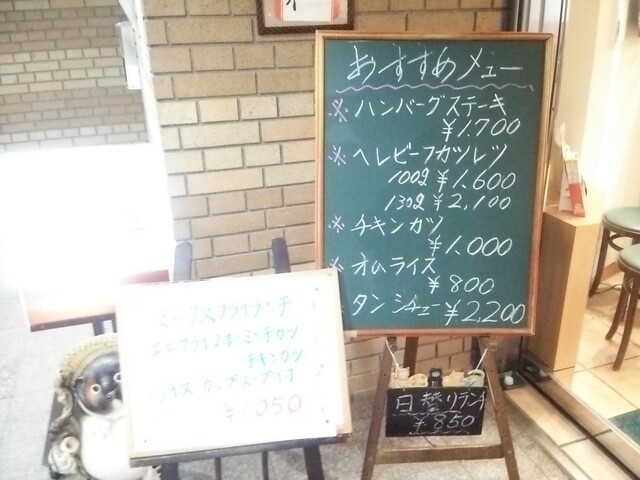 おすすめメニュー
※ハンバーグステーキ
¥1,700
※ヘレビーフカツレツ
100g ¥1,600
130g ¥2,100
※チキンカツ
¥1,000
※オムライス
¥800
タンシチュー ¥2,200
日替りランチ
¥850
ミックスフライランチ
ミンチカツ
チキンカツ
ライス
¥1050